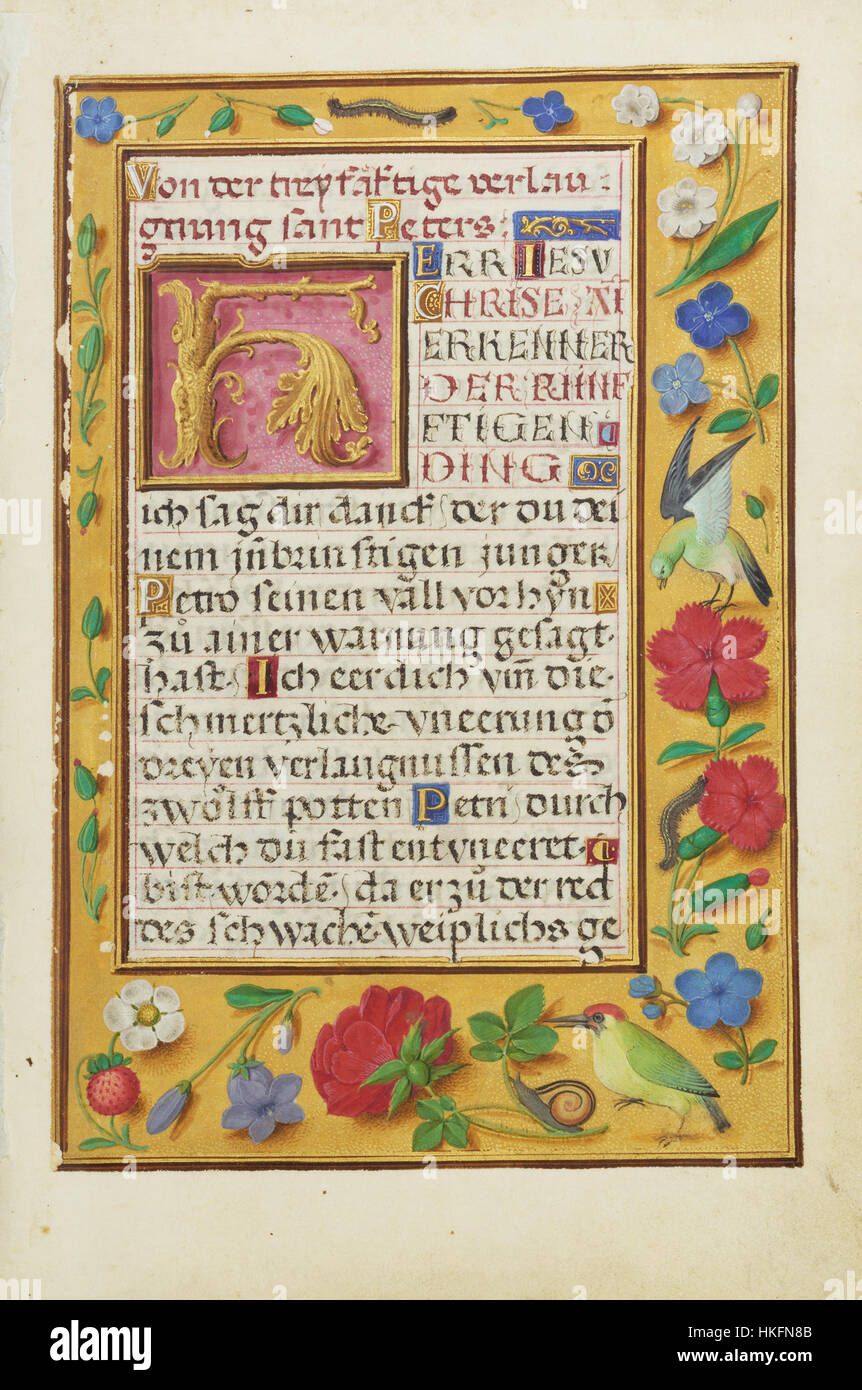 Von der treyfäftige verlau:
gnung sant Peters:
HERR IESV
CHRISE AI
ERKENNER
DER KHNF
FTIGEN
DING
ich sag dir danck der du dei
nem jnbrinstigen junger
Petro seinen vall vorhyn
zů ainer warnung gesagt
hast Ich eer dich vm̄ die
schmertzliche vneerung d̄
dreyen verlangnussen des
zwolff potten Petri durch
welch du fast entvneeret
bist wordē da er zů der red
des schwachē weiplichs ge
alamy
Image ID: HKFN8B
www.alamy.com